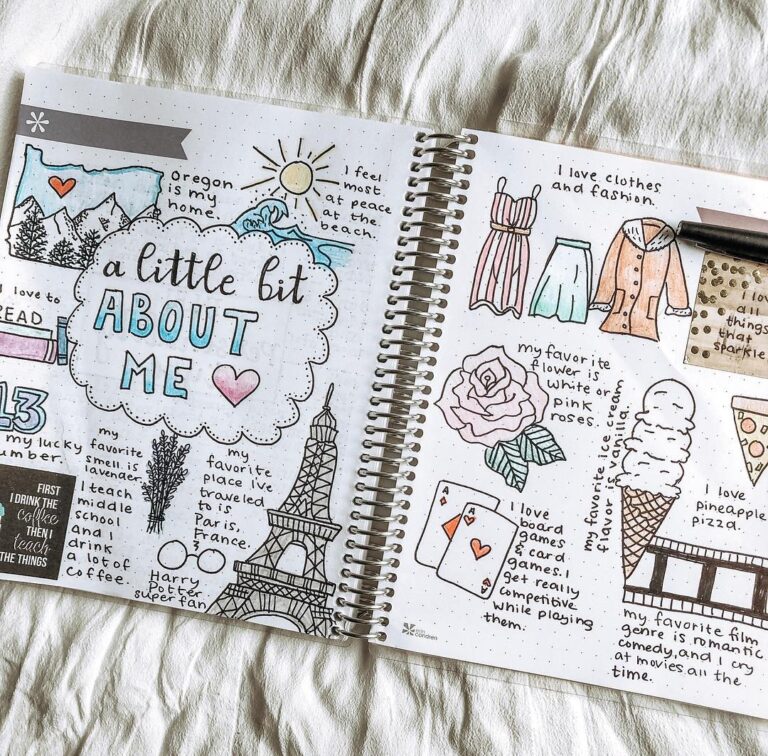 Oregon
is my
home.
I feel
most
at peace
at the
beach.
a little bit
ABOUT
ME
I love to
READ
13
my lucky
umber.
my
favorite
smell is
lavender.
my
favorite
place I've
traveled
to is
Paris,
France.
FIRST
I DRINK THE
coffee
THEN I
teach
THE THINGS
I teach
middle
school
and I
drink
a lot of
coffee.
Harry
Potter
super fan
I love clothes
and fashion.
I lo
all
things
that
sparkle
my favorite
flower is
white or
pink
roses.
my favorite ice cream
flavor is vanilla.
I love
pineapple
pizza.
A
A
A
I love
board
games
& card
games. I
get really
competitive
while playing
them.
my favorite film
genre is romantic
comedy, and I cry
at movies all the
time.
erin
condren